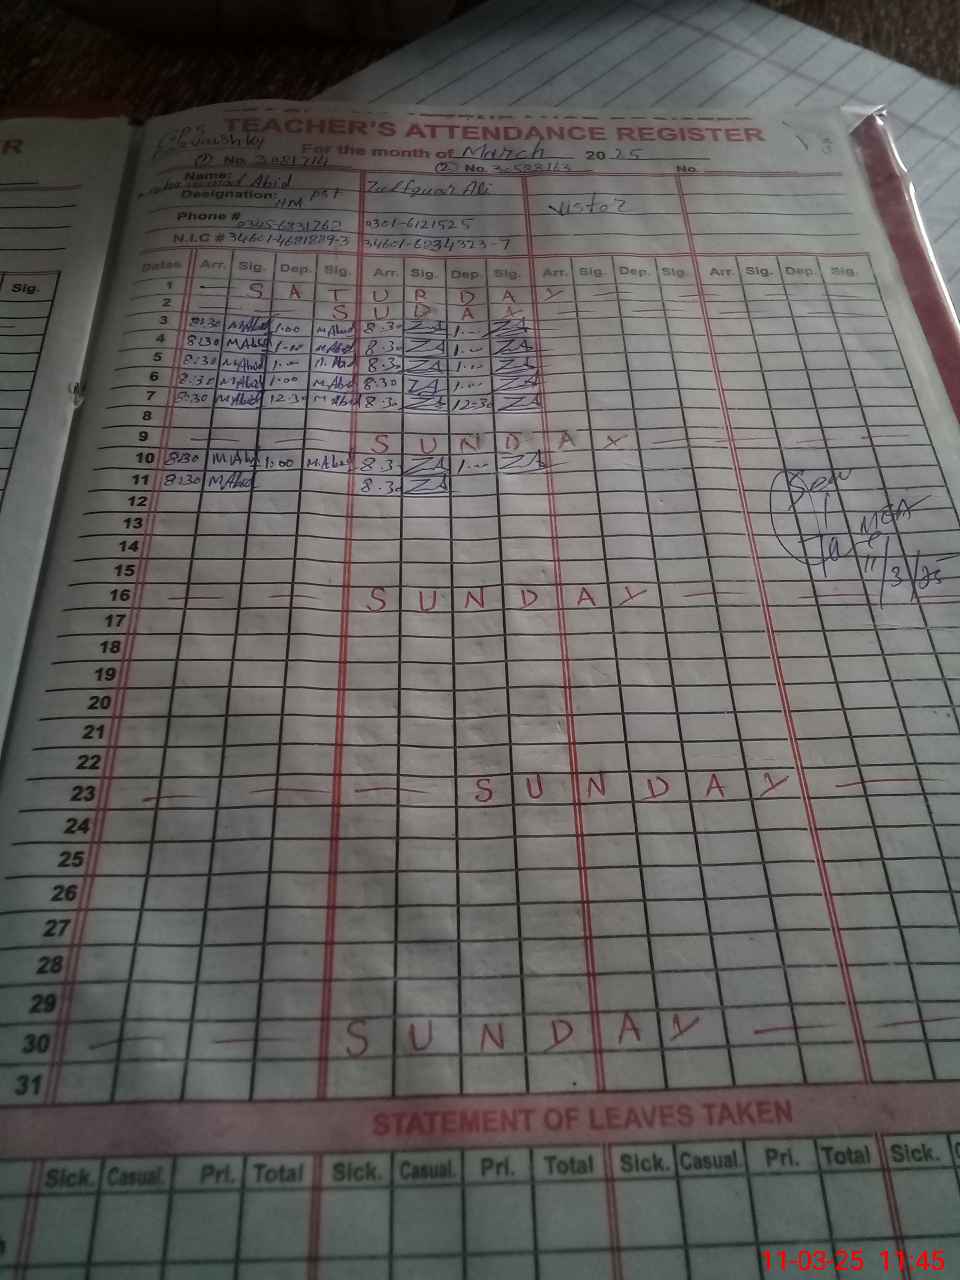 R
TEACHER'S ATTENDANCE REGISTER
GPS
For the month of March 2025
(1) No. 3081714 (2) No. No.
Name: Abid Zulfquar Ali
Designation: HM PST Vistor
Phone # 0301-6121525
N.I.C # 34601-4681889-3 34601-6234323-7
Sig. Dates Arr. Sig. Dep. Sig. Arr. Sig. Dep. Sig. Arr. Sig. Dep. Sig. Arr. Sig. Dep. Sig.
1 S A T U R D A Y
2 S U D A Y
3 8:30 M Abid 1:00 M Abid 8:30 ZA 1:00 ZA
4 8:30 M Abid 1:00 M Abid 8:30 ZA 1:00 ZA
5 8:30 M Abid 1:00 M Abid 8:30 ZA 1:00 ZA
6 8:30 M Abid 1:00 M Abid 8:30 ZA 1:00 ZA
7 8:30 M Abid 12:30 M Abid 8:30 ZA 12:30 ZA
8
9 S U N D A Y
10 8:30 M Abid 1:00 M Abid 8:30 ZA 1:00 ZA
11 8:30 M Abid 8:30 ZA
Seen
12
13 MEA
14
15 11/3/25
16 S U N D A Y
17
18
19
20
21
22
23 S U N D A Y
24
25
26
27
28
29
30 S U N D A Y
31
STATEMENT OF LEAVES TAKEN
Sick. Casual. Pri. Total Sick. Casual. Pri. Total Sick. Casual. Pri. Total Sick.
11-03-25 11:45